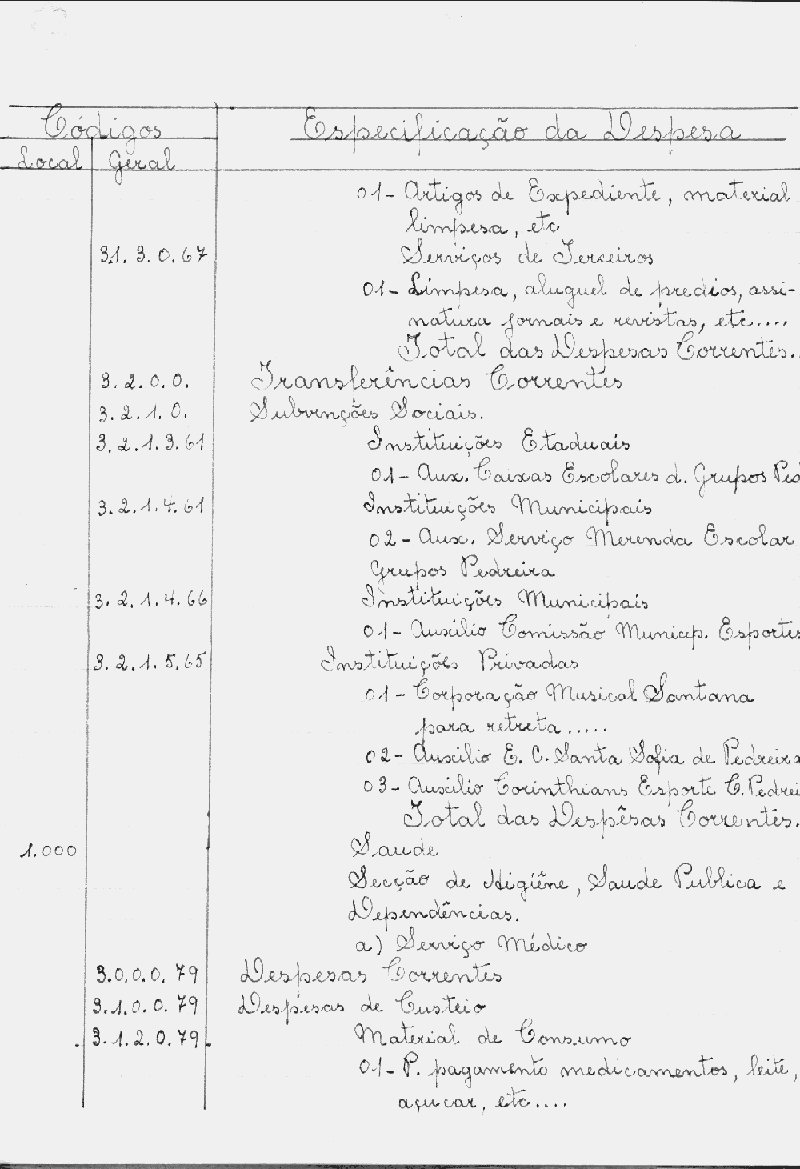 Códigos Especificação da Despesa
Local Geral
01- Artigos de Expediente, material
limpesa, etc
3.1.3.0.67 Serviços de Terceiros
01- Limpesa, aluguel de predios, assi-
natura jornais e revistas, etc.....
Total das Despesas Correntes..
3.2.0.0. Transferências Correntes
3.2.1.0. Subvenções Sociais.
3.2.1.3.61 Instituições Etaduais
01- Aux. Caixas Escolares d. Grupos Ped
3.2.1.4.61 Instituições Municipais
02- Aux. Serviço Merenda Escolar
Grupos Pedreira
3.2.1.4.66 Instituições Municipais
01- Auxilio Comissão Municip. Esportes
3.2.1.5.65 Instituições Privadas
01- Corporação Musical Santana
para retreta.....
02- Auxilio E. C. Santa Sofia de Pedreira
03- Auxilio Corinthians Esporte C. Pedrei
Total das Despêsas Correntes.
1.000 Saude
Secção de Higiêne, Saude Publica e
Dependências.
a) Serviço Médico
3.0.0.0.79 Despesas Correntes
3.1.0.0.79 Despesas de Custeio
3.1.2.0.79 Material de Consumo
01- P. pagamento medicamentos, leite,
açucar, etc....